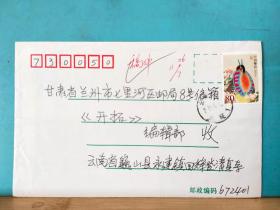 730050
甘肃省兰州市七里河区邮局8号信箱
《开拓》
编辑部 收
云南省巍山县永建镇回辉登清真寺
邮政编码 672401
80